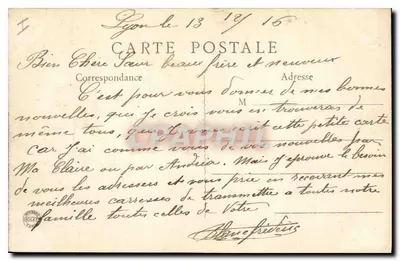 Lyon le 13 12/15
CARTE POSTALE
Bien Chere Sœur beau frère et neuveux
Correspondance
Adresse
C'est pour vous donner de mes bonnes
M
nouvelles, que je crois vous en trouverais de
même tous, que vous cette petite carte
car J'ai comme de vos nouvelles par
Ma Claire ou par Andréa. Mais J'éprouve le besoin
de vous les adresser et vous prie en recevant mes
meilheures caresses de transmettre a toutes notre
famille toutes celles de Votre